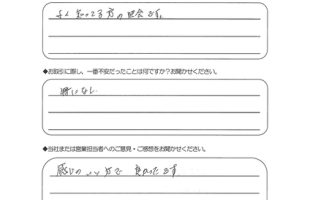 よく知ってる方の紹介です。
◆お取引に際し、一番不安だったことは何ですか？お聞かせください。
特になし
◆当社または営業担当者へのご意見・ご感想をお聞かせください。
感じのいい方で良かったです